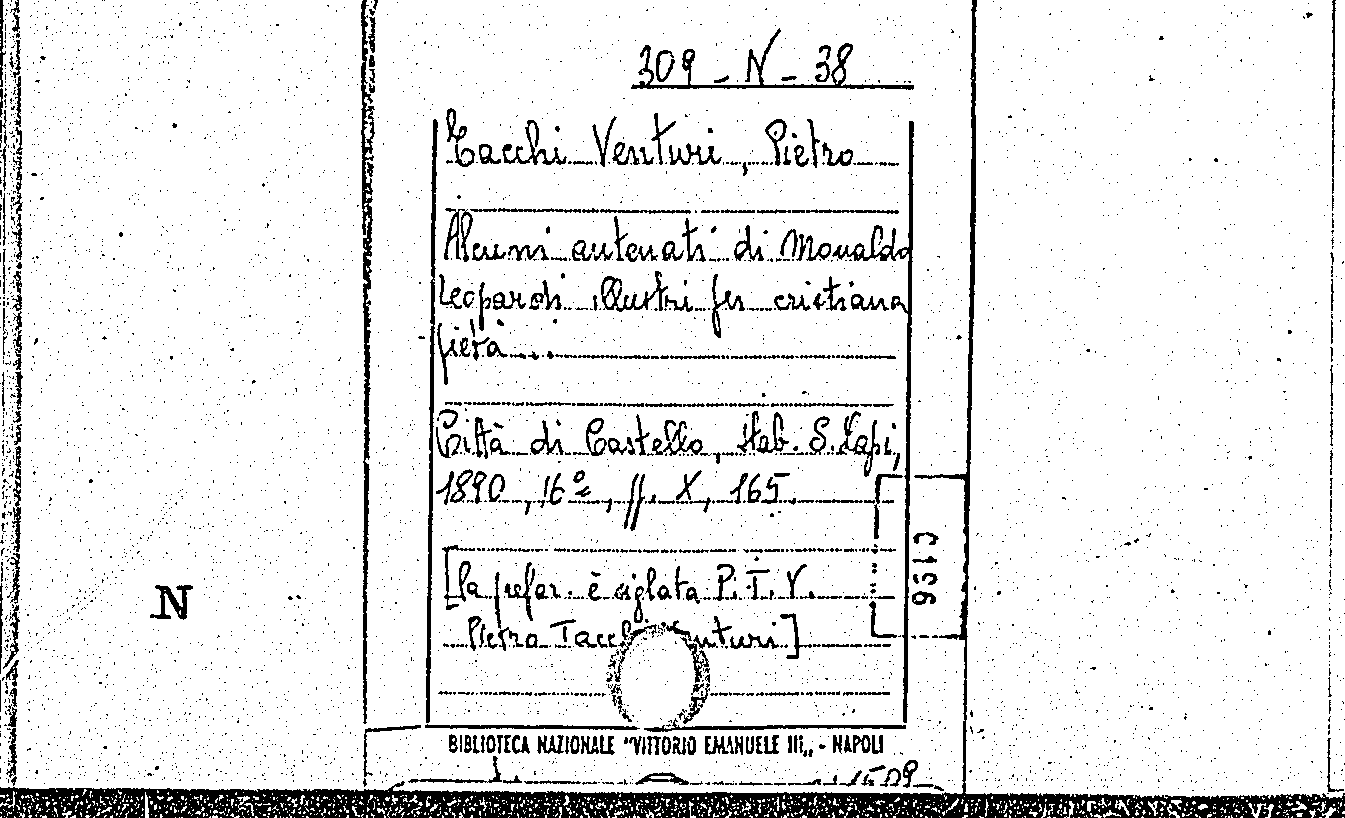 309 - N - 38
Tacchi Venturi, Pietro
Alcuni antenati di Monaldo
Leopardi illustri per cristiana
pietà...
Città di Castello, Stab. S. Lapi,
1890, 16º, pp. X, 165.
[La prefaz. è siglata P. T. V.
Pietro Tacchi Venturi]
C1S6
N
BIBLIOTECA NAZIONALE "VITTORIO EMANUELE III„ - NAPOLI
1509